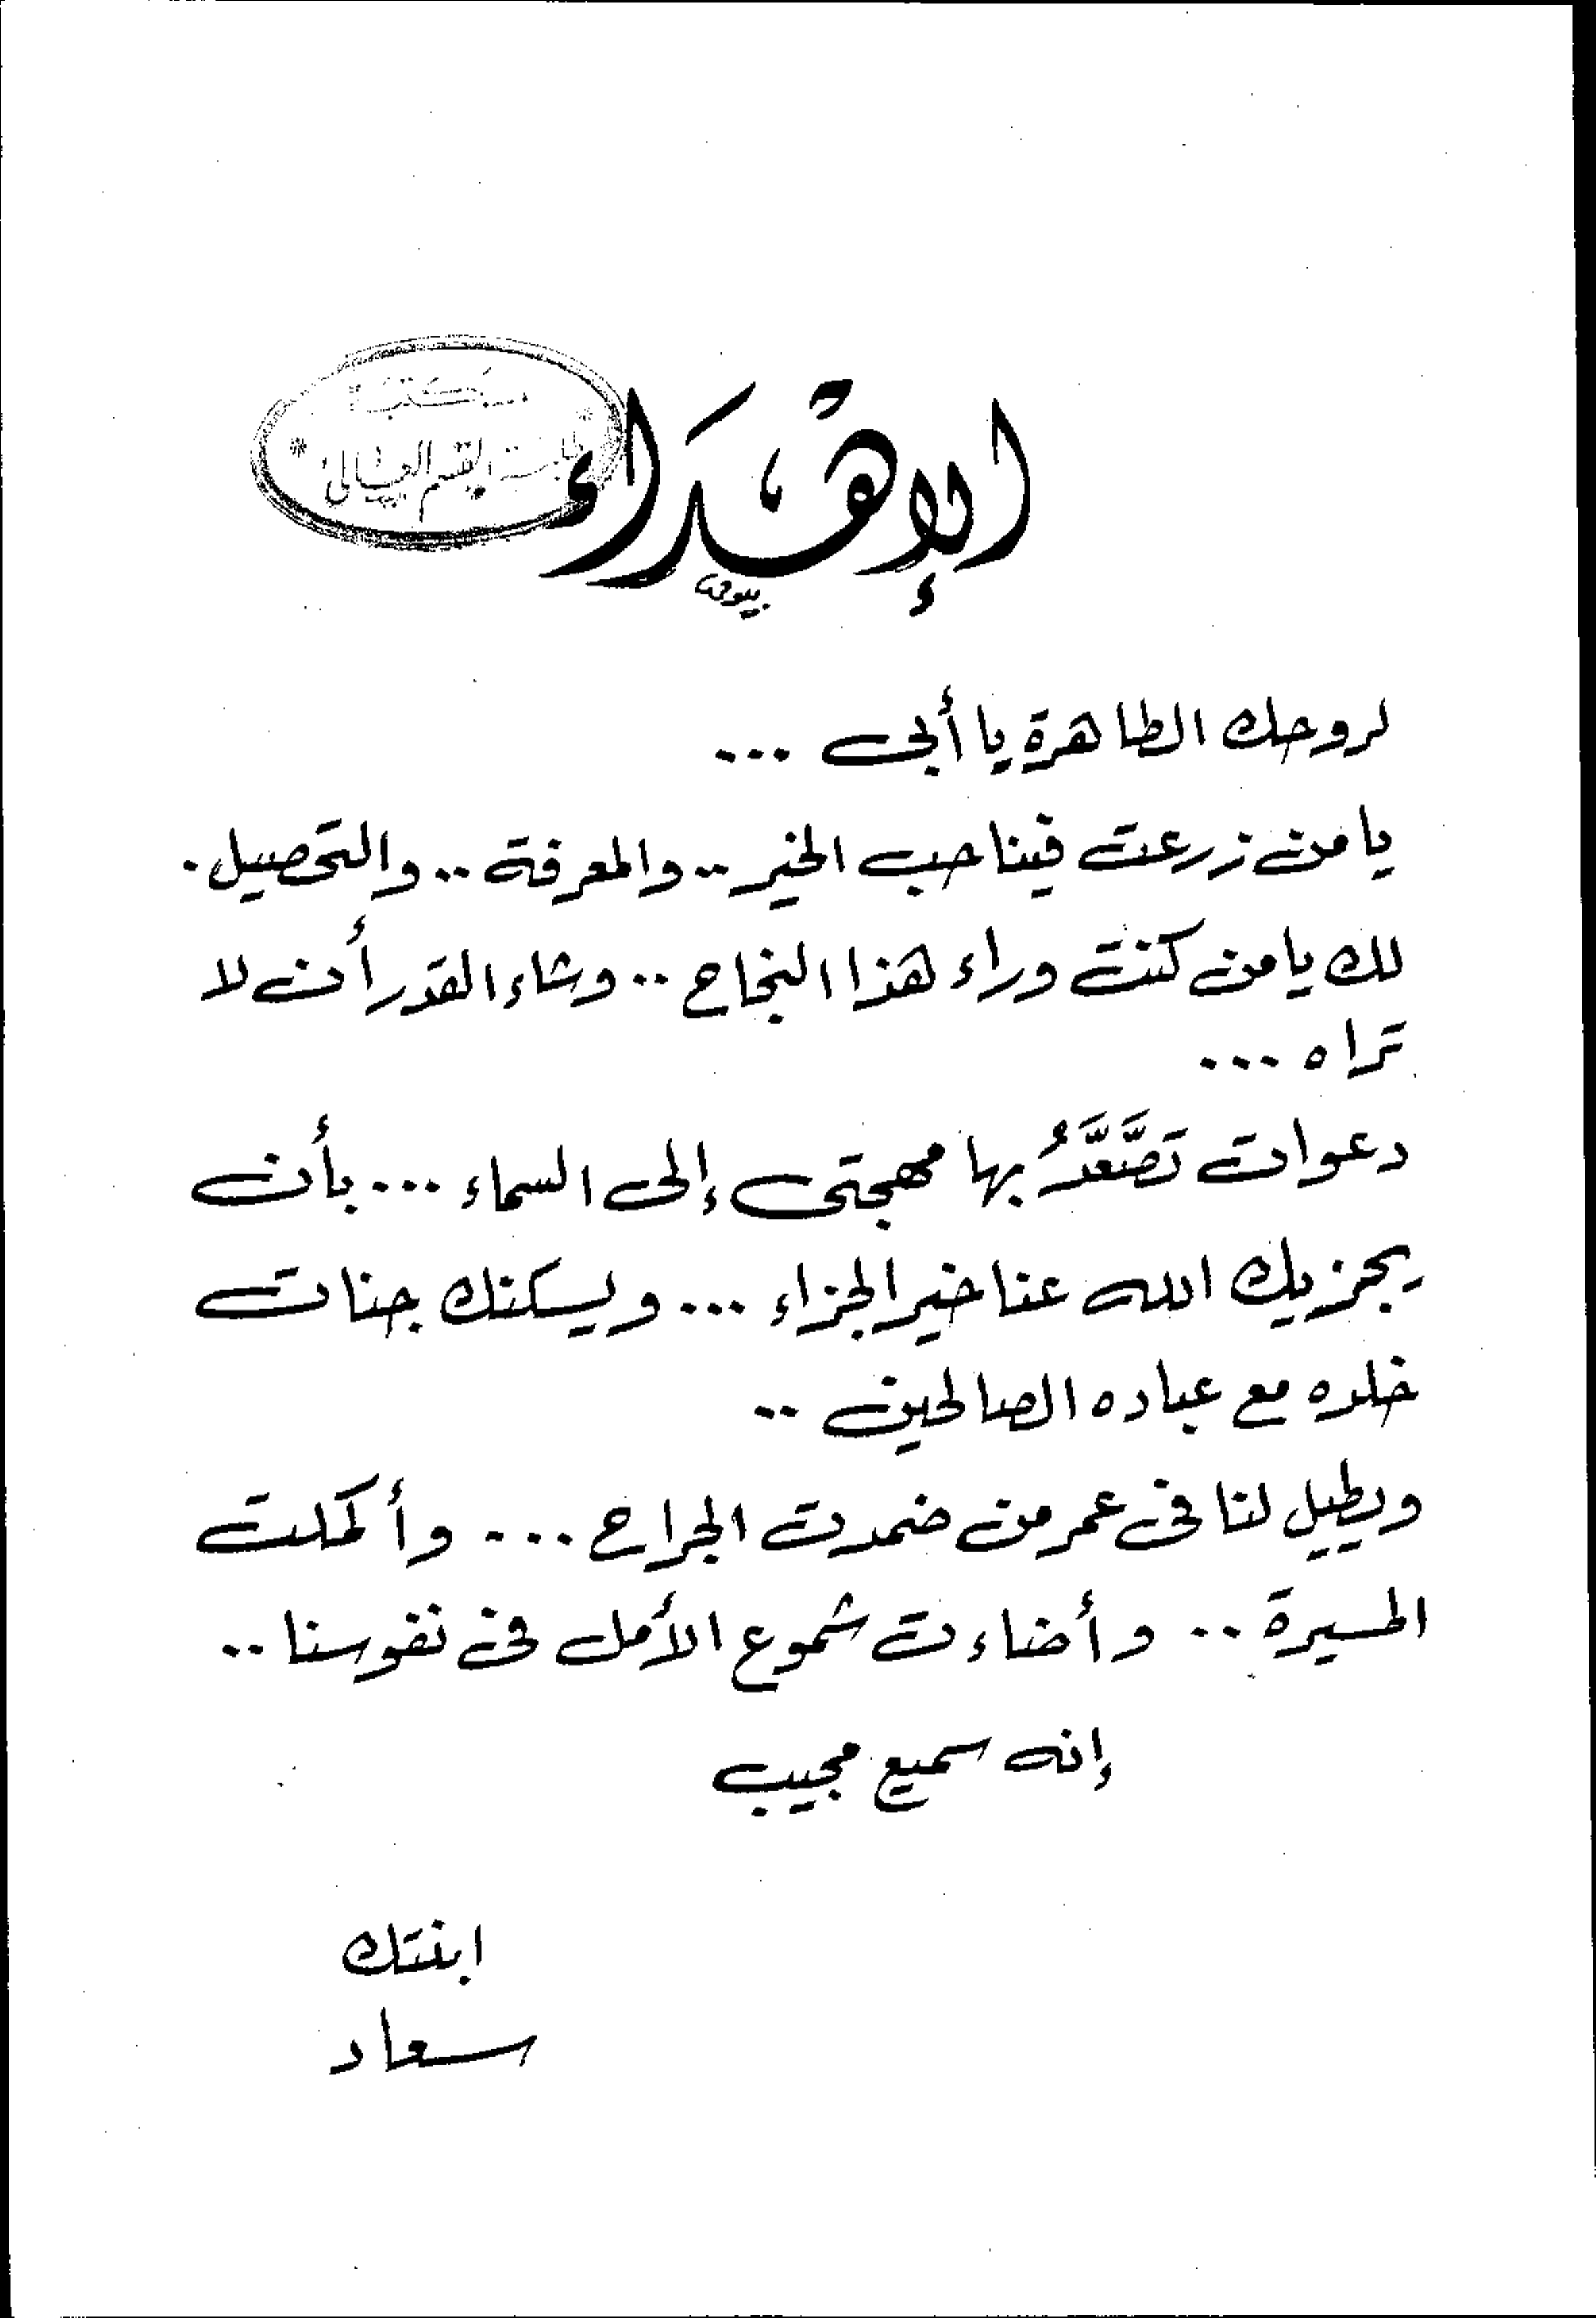 مكتبة
الإهْدَاء
لروحك الطاهرة يا أبى ...
يا من زرعت فينا حب الخير .. والمعرفة .. والتحصيل .
لك يا من كنت وراء هذا النجاح .. وشاء القدر أن لا
تراه ...
دعوات تَصَّعَّدُ بها مهجتى إلى السماء ... بأن
يجزيك الله عنا خير الجزاء ... ويسكنك جنات
خلده مع عباده الصالحين ..
ويطيل لنا فى عمر من ضمدت الجراح ... وأكملت
المسيرة .. وأضاءت شموع الأمل فى نفوسنا ..
إنه سميع مجيب
ابنتك
سعاد